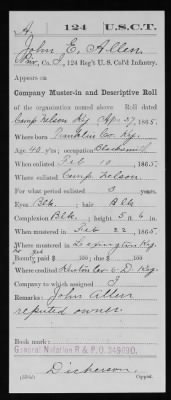 A | 124 | U.S.C.T.
John E. Allen
Pvt., Co. I, 124 Reg't U. S. Col'd Infantry.
Appears on
Company Muster-in and Descriptive Roll
of the organization named above. Roll dated
Camp Nelson Ky Apr 27, 1865.
Where born Co. Ky.
Age 40 y'rs; occupation Blacksmith
When enlisted Feb 10, 1865.
Where enlisted Camp Nelson.
For what period enlisted 3 years.
Eyes Blk.; hair Blk
Complexion Blk.; height 5 ft. 6 in.
When mustered in Feb 22, 1865.
Where mustered in Lexington, Ky.
Bounty paid $ 100; due $ 100
Where credited 6 D. Ky
Company to which assigned I
Remarks: John Allen
reputed owner.
Book mark:
General Notation R & P.O. 349090.
Dickerson.
Copyist.